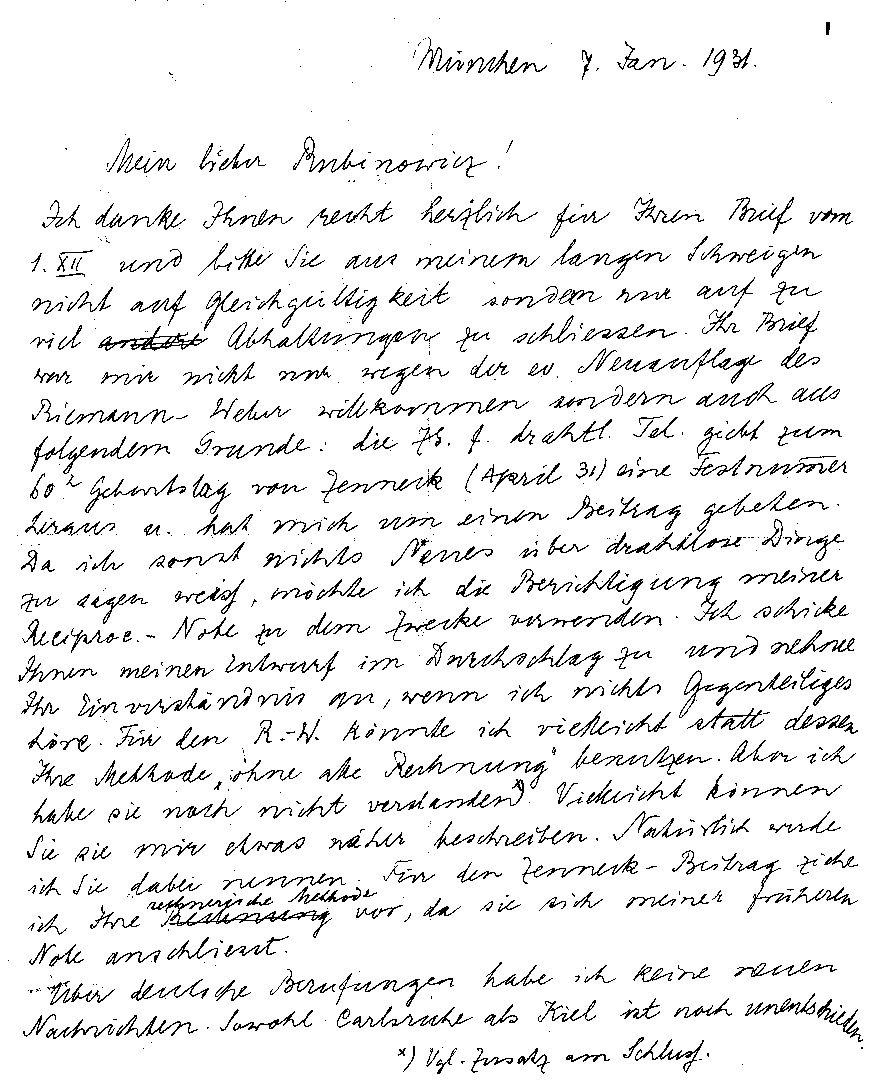 München 7. Jan. 1931.
Mein lieber Rubinowicz!
Ich danke Ihnen recht herzlich für Ihren Brief vom
1. XII und bitte Sie aus meinem langen Schweigen
nicht auf Gleichgültigkeit sondern nur auf zu
viel andere Abhaltungen zu schliessen. Ihr Brief
war mir nicht nur wegen der ev. Neuauflage des
Riemann-Weber willkommen sondern auch aus
folgendem Grunde: die Zs. f. drahtl. Tel. giebt zum
60ten Geburtstag von Zenneck (April 31) eine Festnummer
heraus u. hat mich um einen Beitrag gebeten.
Da ich sonst nichts Neues über drahtlose Dinge
zu sagen weiß, möchte ich die Berichtigung meiner
Reciproc.-Note zu dem Zwecke verwenden. Ich schicke
Ihnen meinen Entwurf im Durchschlag zu und nehme
Ihr Einverständnis an, wenn ich nichts Gegenteiliges
höre. Für den R.-W. könnte ich vielleicht statt dessen
Ihre Methode „ohne alle Rechnung" benutzen. Aber ich
habe sie noch nicht verstanden x). Vielleicht können
Sie sie mir etwas näher beschreiben. Natürlich werde
ich Sie dabei nennen. Für den Zenneck-Beitrag ziehe
rechnerische Methode
ich Ihre Rechnung vor, da sie sich meiner früheren
Note anschliesst.
Über deutsche Berufungen habe ich keine neuen
Nachrichten. Sowohl Carlsruhe als Kiel ist noch unentschieden.
x) Vgl. Zusatz am Schluß.